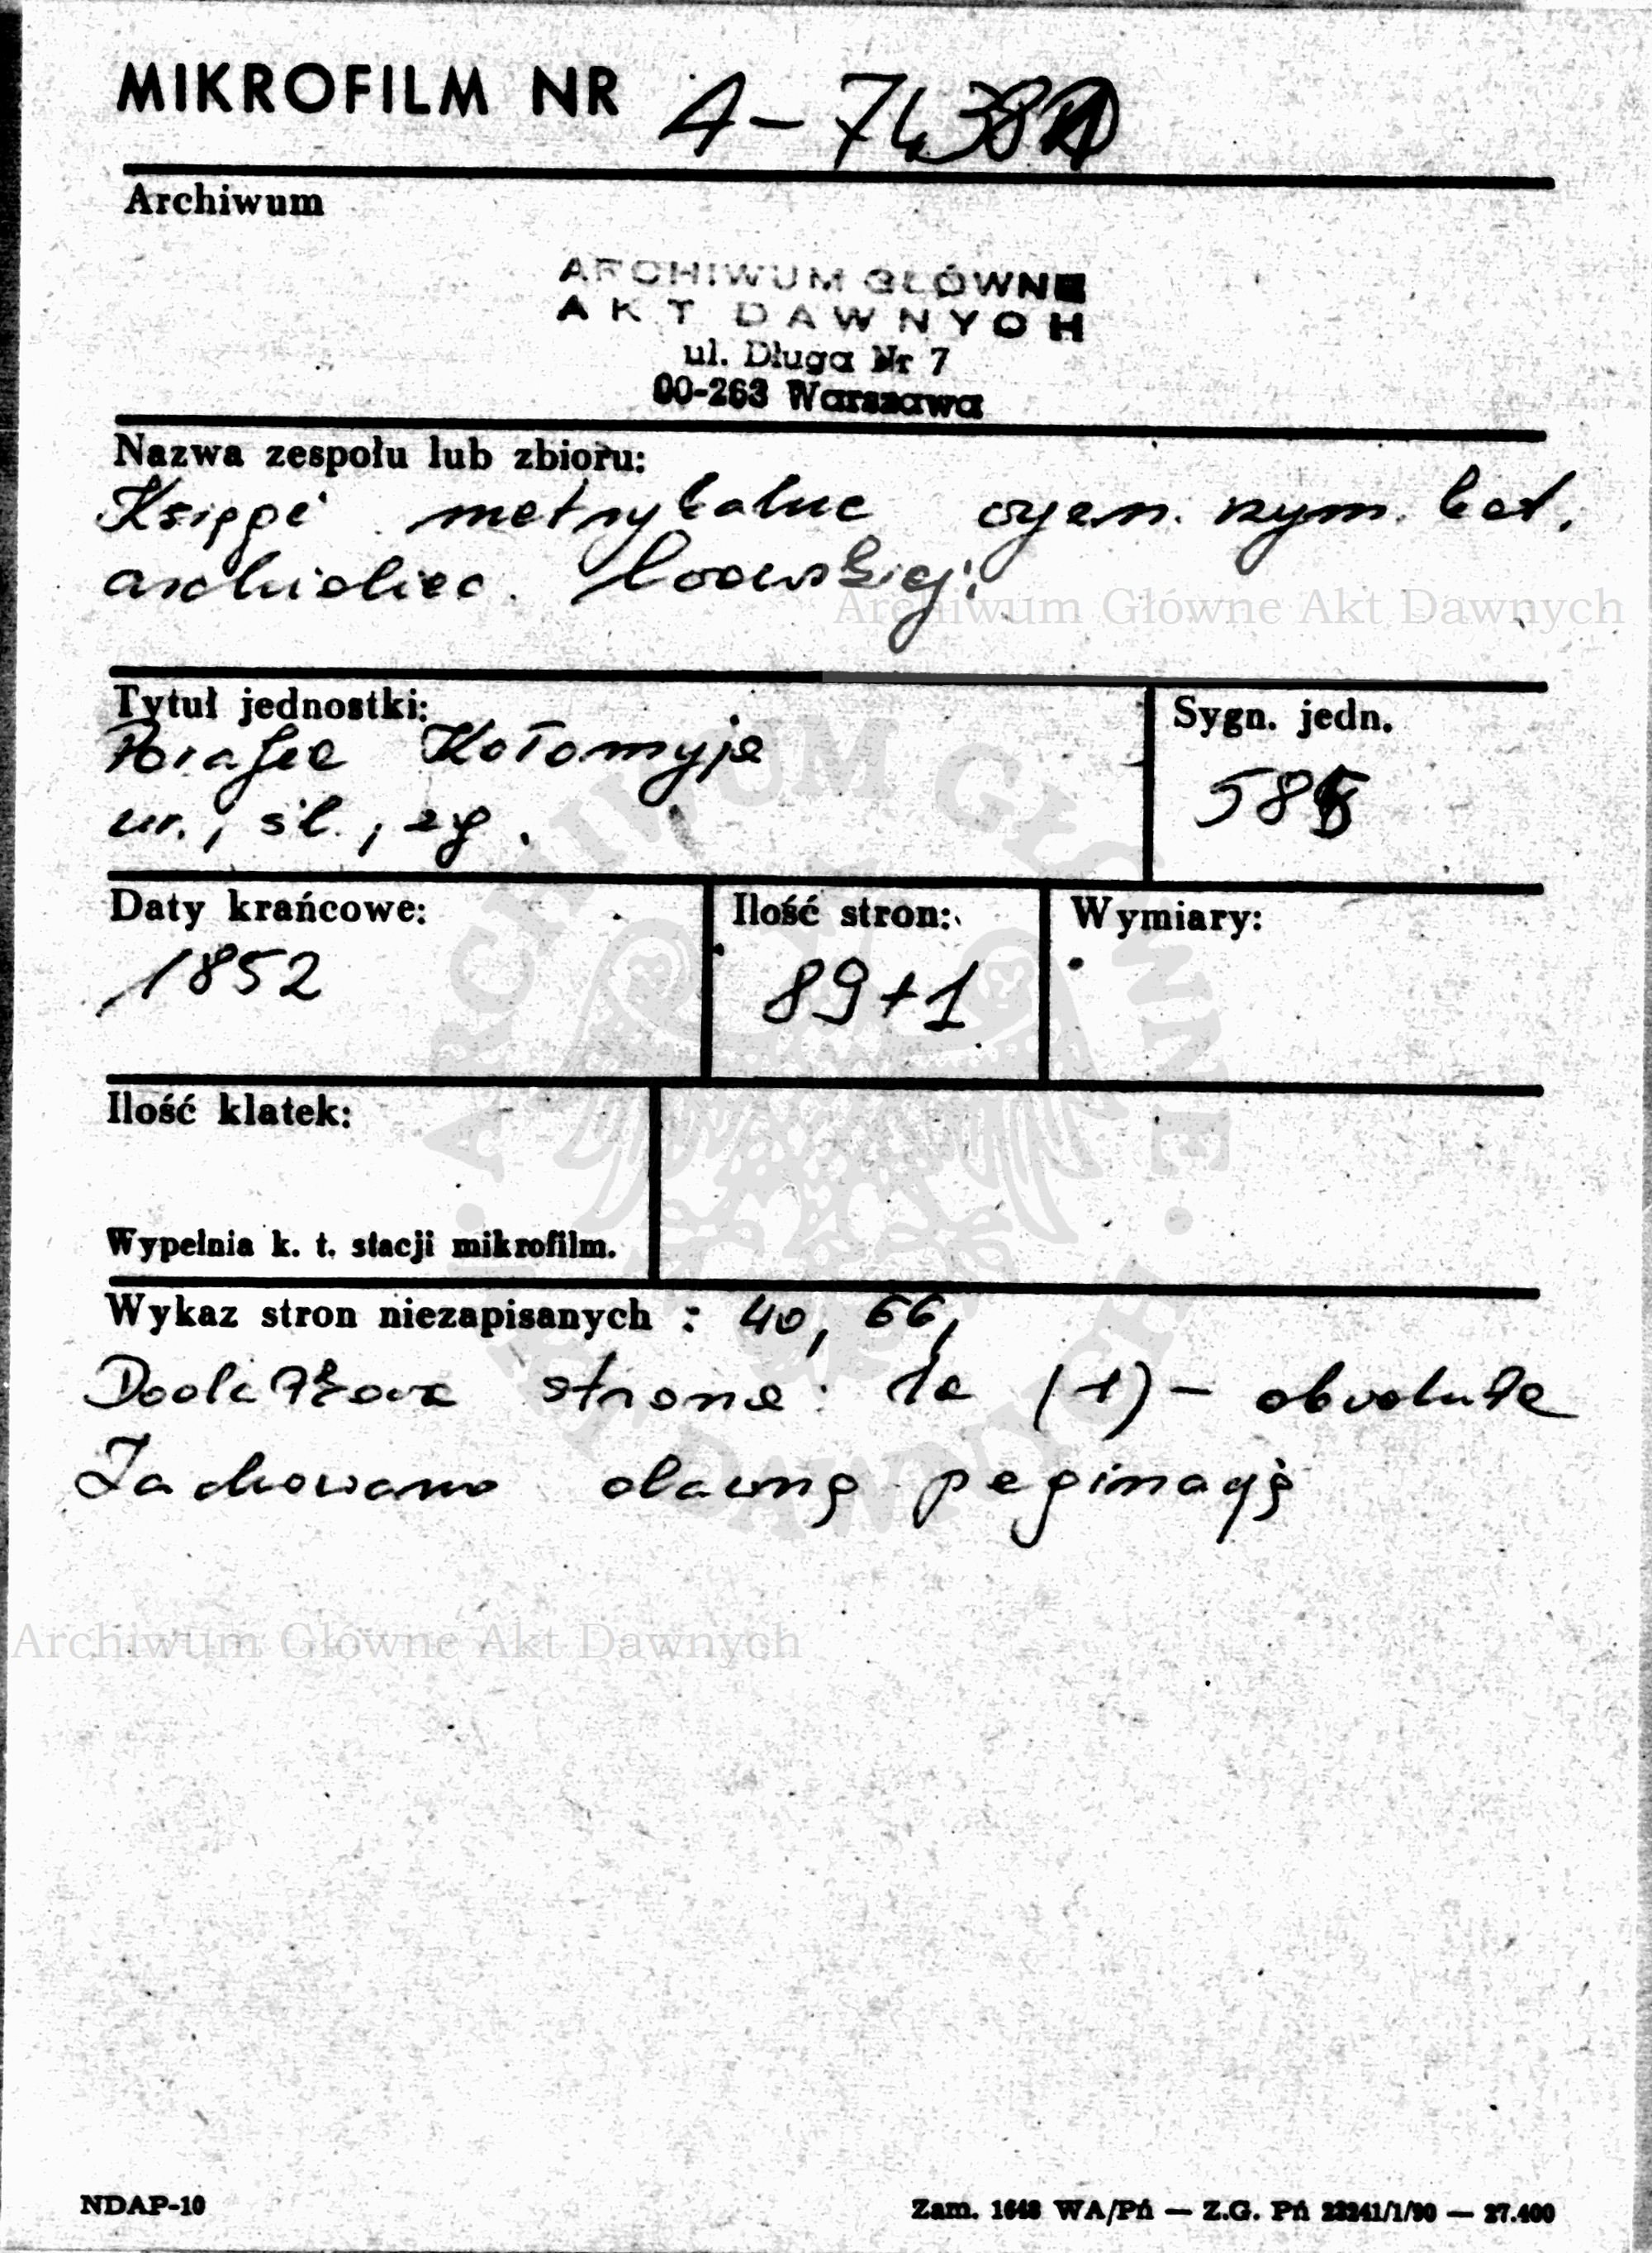 MIKROFILM NR A-7438
Archiwum
ARCHIWUM GŁÓWNE
AKT DAWNYCH
ul. Długa Nr 7
00-263 Warszawa
Nazwa zespołu lub zbioru:
Księgi metrykalne wyzn. rzym. kat.
archidiec. lwowskiej.
Archiwum Główne Akt Dawnych
Tytuł jednostki:
Parafia Kołomyja
ur., śl., zg.
Sygn. jedn.
58
Daty krańcowe:
1852
Ilość stron:
89+1
Wymiary:
Ilość klatek:
Wypełnia k. t. stacji mikrofilm.
Wykaz stron niezapisanych : 40, 66,
Dodatkowa strona: 1a (+1) - obwoluta
Zachowano dawną paginację
Archiwum Główne Akt Dawnych
ARCHIWUM GŁÓWNE · AKT DAWNYCH ·
NDAP-10
Zam. 1648 WA/Pń — Z.G. Pń 23241/1/90 — 27.400